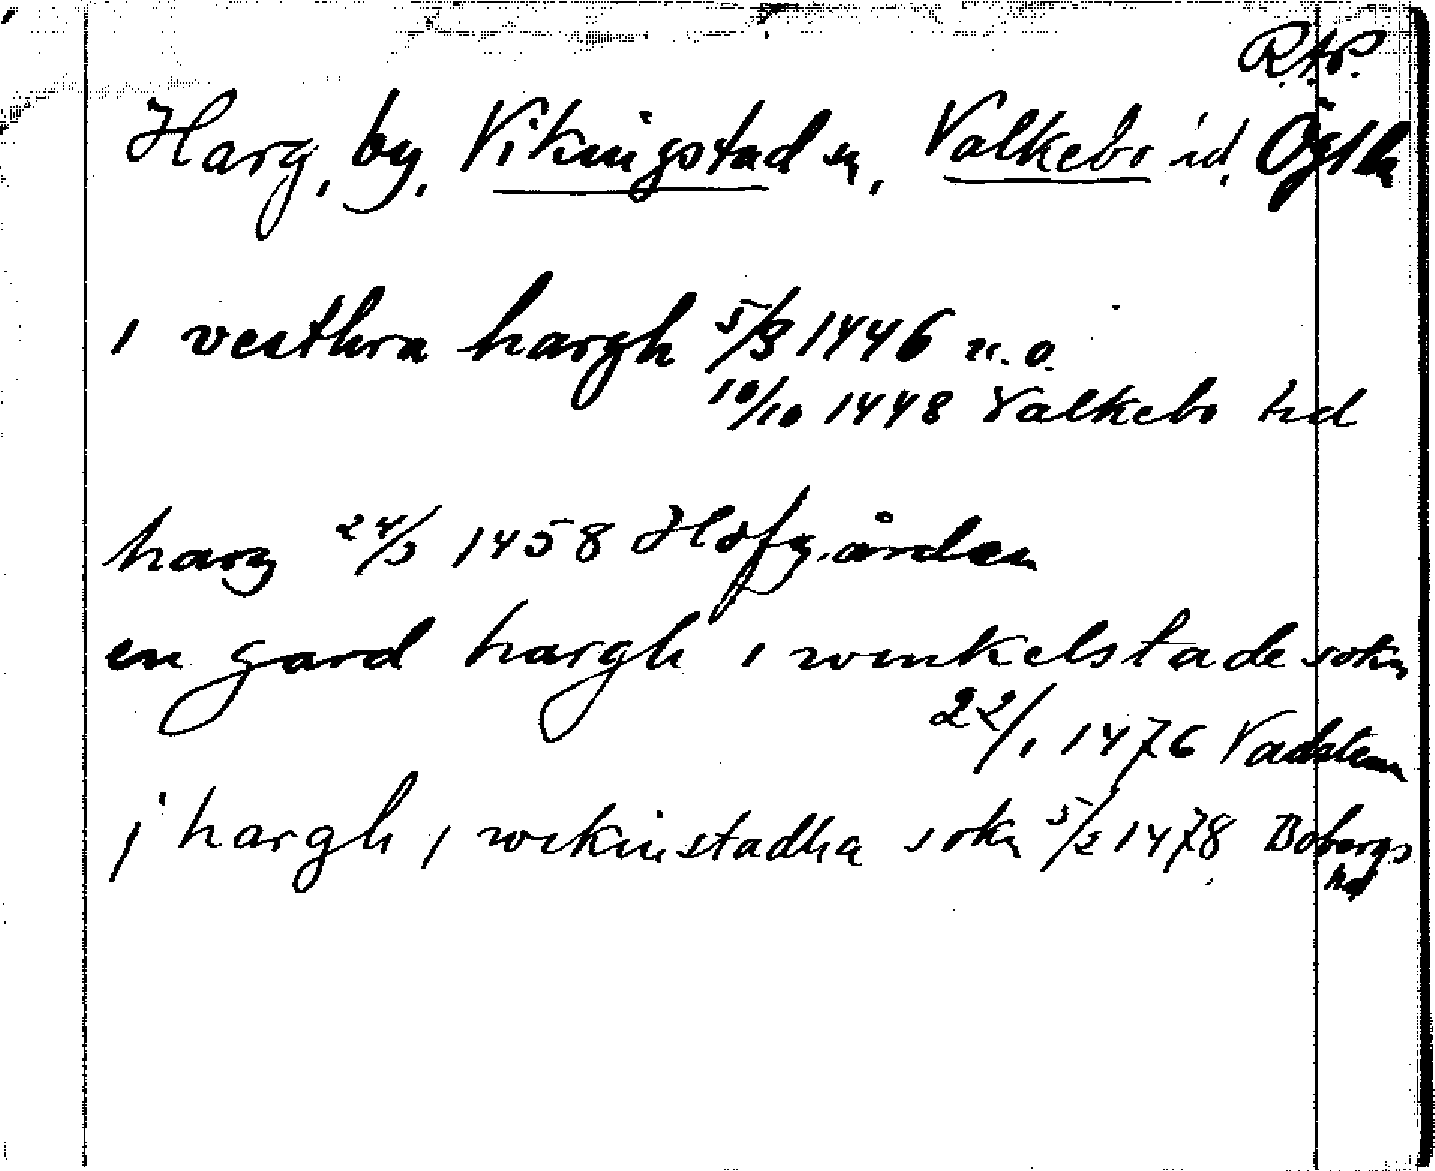 R.A.P.
Harg, by, Vikingstad sn, Valkebo hd, Ögtld
i vesthra hargh 5/3 1446 u.o.
10/10 1448 Valkebo hd
harg 24/5 1458 Hofgården
en gard hargh i winkelstade sokn
22/1 1476 Vadstena
j hargh i wikinstadha sokn 5/2 1478 Bobergs
hd